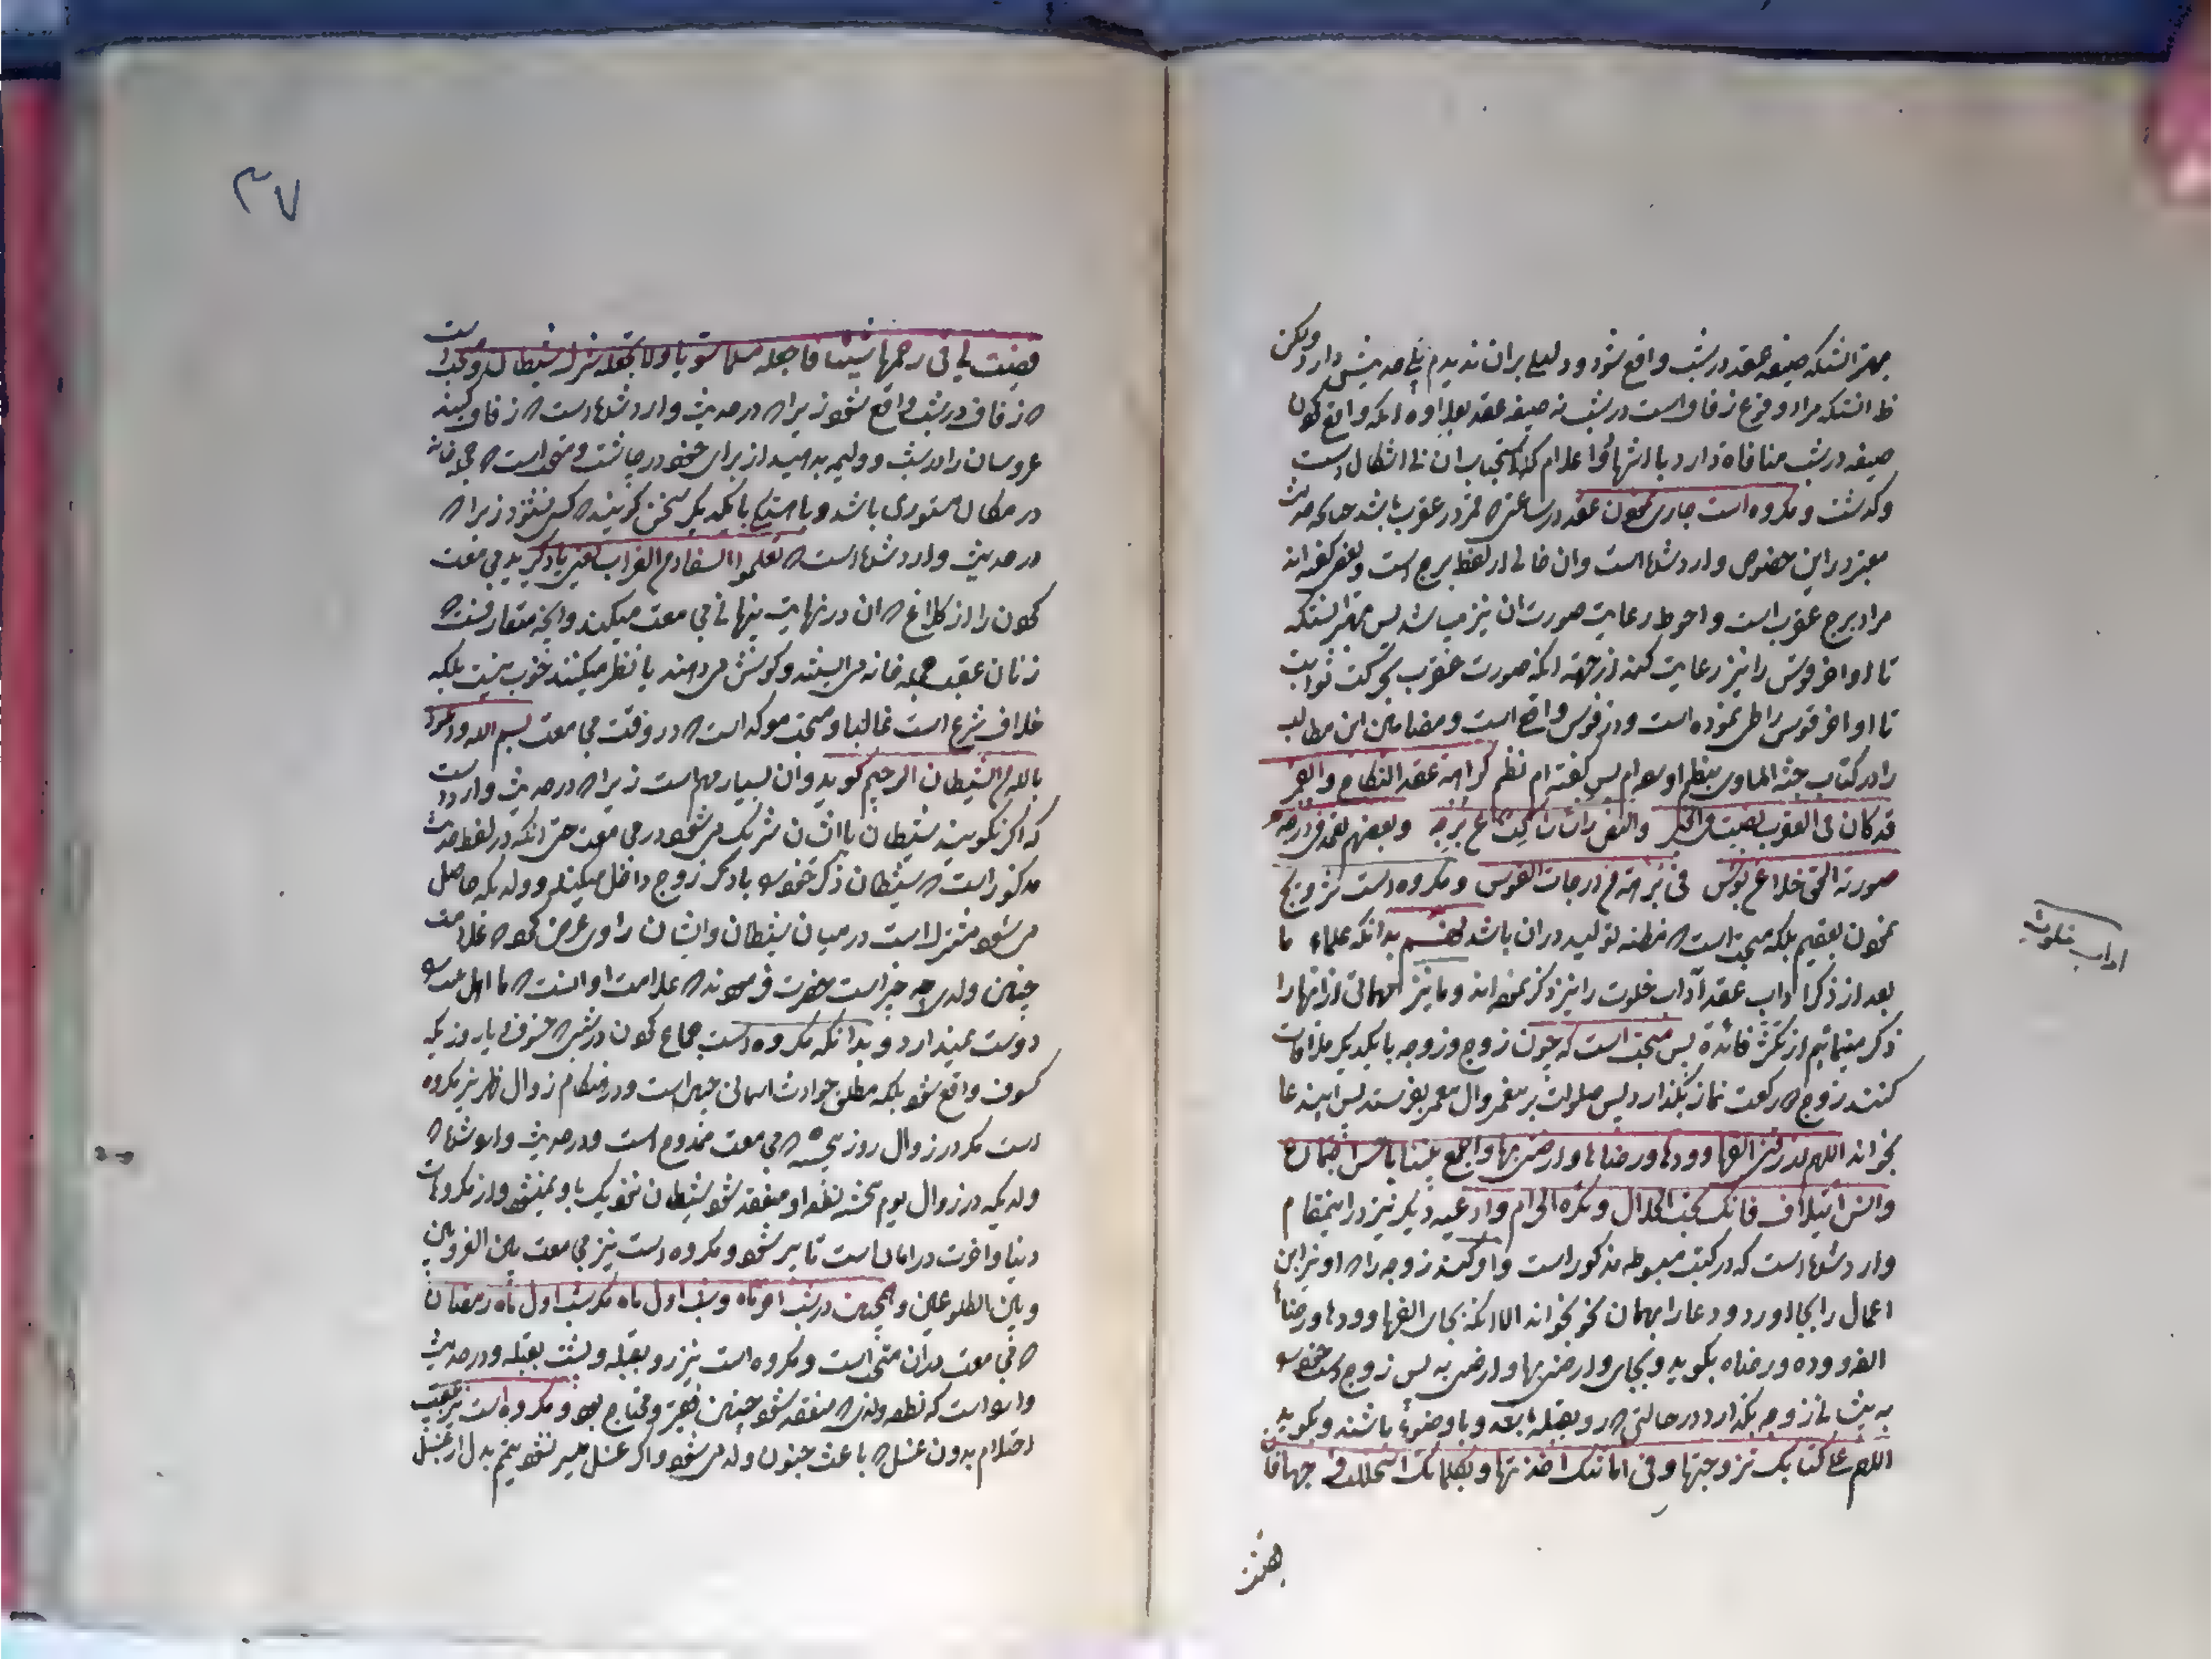 بهتر انستکه صیغه عقد در شب واقع شود و دلیلی بران ندیدم بلی حدیثی دارد ولکن
ظ انستکه مراد وقوع زفاف است در شب نه صیغه عقد بعلاوه انکه واقع کردن
صیغه در شب منافاة دارد با اشهاد و اعلام کذا استحباب ان بی اشکال است
و گذشت و مکروه است جاری نمودن عقد در ساعتی که قمر در عقرب باشد چنانکه حدیث
معتبر در این خصوص وارد شده است و ان خالی از لفظ برج است و بعضی گفته اند
مراد برج عقرب است و احوط رعایت صورت ان نیز میباشد پس بهتر انستکه
تا اواخر قوس را نیز رعایت کند از جهة انکه صورت عقرب بحرکت ثوابت
تا اواخر قوس را طی نموده است و در قوس واقع است و مضامین این مطالب
را در کتاب جنة الماوی بنظم اورده ام پس گفته ام نظم کراهة عقد النکاح والقمر
قد کان فی العقرب
صورته و مکروه است تزویج
نمودن بعقیم بلکه مستحب است که مظنه تولید در ان باشد بدانکه علماء ما
بعد از ذکر اداب عقد آداب خلوت را نیز ذکر نموده اند و ما نیز از انها را
ذکر مینمائیم از فائدة پس مستحب است که چون زوج و زوجه با یکدیگر ملاقات
کنند زوج دو رکعت نماز بگذارد پس صلوات بر پیغمبر و ال پیغمبر بفرستد پس این دعا
بخواند اللهم ارزقنی الفها وودها ورضاها وارضنی بها واجمع بیننا باحسن اجتماع
وانس ایتلاف فانک تحب الحلال وتکره الحرام وادعیه دیگر نیز در اینمقام
وارد شده است که در کتب مبسوطه مذکور است و امر کند زوجه را که او نیز این
اعمال را بجا اورد و دعا را بهمان نحو بخواند الا انکه بجای الفها وودها ورضاها
الفه ووده ورضاه بگوید و بجای وارضنی بها وارضنی به پس زوج دست خود را
به پیشانی زوجه بگذارد در حالتی که رو بقبله بوده و با وضوء باشند و بگوید
اللهم علی کتابک تزوجتها وفی امانتک اخذتها وبکلماتک استحللت فرجها فان
قضیت
اداب خلوت
۳۷
قضیت لی فی رحمها شیئا فاجعله مسلما سویا ولا تجعله شرک شیطان و مستحب است
که زفاف در شب واقع شود زیرا که در حدیث وارد شده است که زفاف کنید
عروسان را در شب و ولیمه بدهید از برای خود در چاشت و مستحب است که حجله خانه
در مکان مستوری باشد و باهستگی با یکدیگر سخن گویند که کس نشنود زیرا که
در حدیث وارد شده است که تعلموا السفاد من الغراب یعنی یاد گیرید مجامعت
کردن را از کلاغ که ان در نهایت پنهانی مجامعت میکند و انچه متعارفست که
زنان عقب حجله خانه می ایستند و گوش می دهند یا نظر میکنند خوب نیست بلکه
خلاف شرع است غالبا و مستحب موکد است که در وقت مجامعت بسم الله و اعوذ
بالله من الشیطان الرجیم گوید و ان بسیار مهم است زیرا که در حدیث وارد است
که اگر نگویند شیطان با ایشان شریک می شود در مجامعت حتی انکه در لفظ حدیث
مذکور است که شیطان ذکر خود را با ذکر زوج داخل میکند و ولدیکه حاصل
می شود مشترک است در میان شیطان و ایشان راوی عرض کرد که علامت
چنین ولدی چه چیز است حضرت فرمودند که علامت او انست که ما اهل بیت را
دوست نمیدارد و بدانکه مکروه است جماع کردن در شبی که خسوف یا روزیکه
کسوف واقع شود بلکه مطلق حوادث اسمانی چنین است و در هنگام زوال ظهر نیز مکروه
است مگر در زوال روز پنجشنبه که مجامعت ممدوح است و در حدیث وارد شده که
ولدیکه در زوال یوم پنجشنبه نطفه او منعقد شود شیطان نزدیک باو نمیشود و از مکروهات
دنیا و اخرت در امان است تا پیر شود و مکروه است نیز مجامعت بین الغروبین
و بین الطلوعین و همچنین در شب اخر ماه و شب اول ماه مگر شب اول ماه رمضان
که مجامعت در ان مستحب است و مکروه است نیز رو بقبله و پشت بقبله و در حدیث
وارد است که نطفه ولدی که منعقد شود چنین فقیر و محتاج بود و مکروه است نیز عقیب
احتلام بدون غسل که باعث جنون ولد می شود و اگر غسل میسر نشود تیمم بدل از غسل